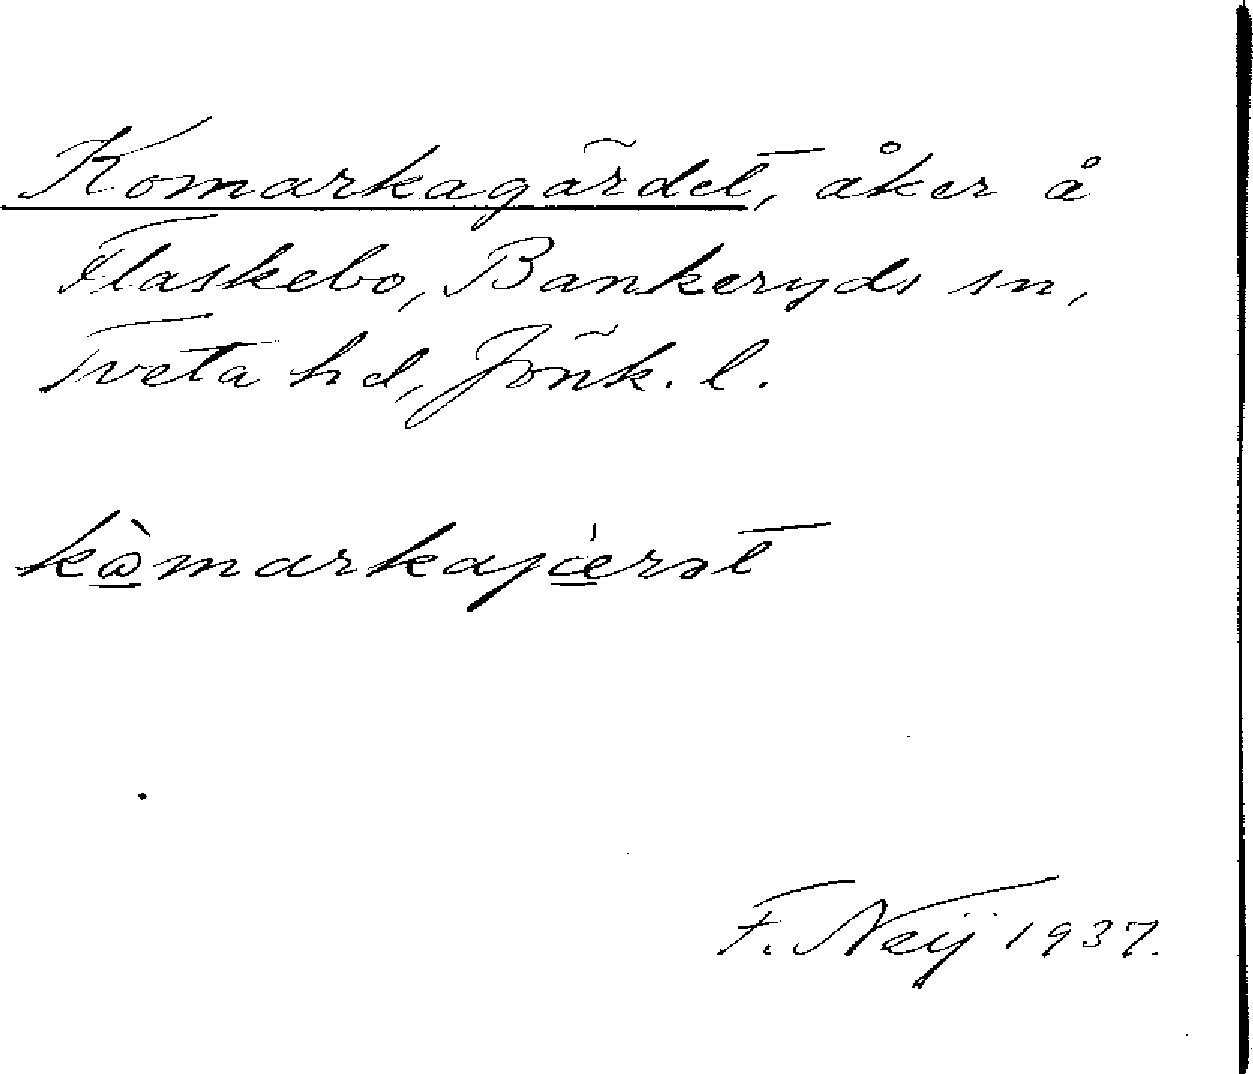 Komarkagärdet, åker å
Flaskebo, Bankeryds sn,
Tveta hd, Jönk. l.
kòmarkajæ̍rət
F. Neij 1937.